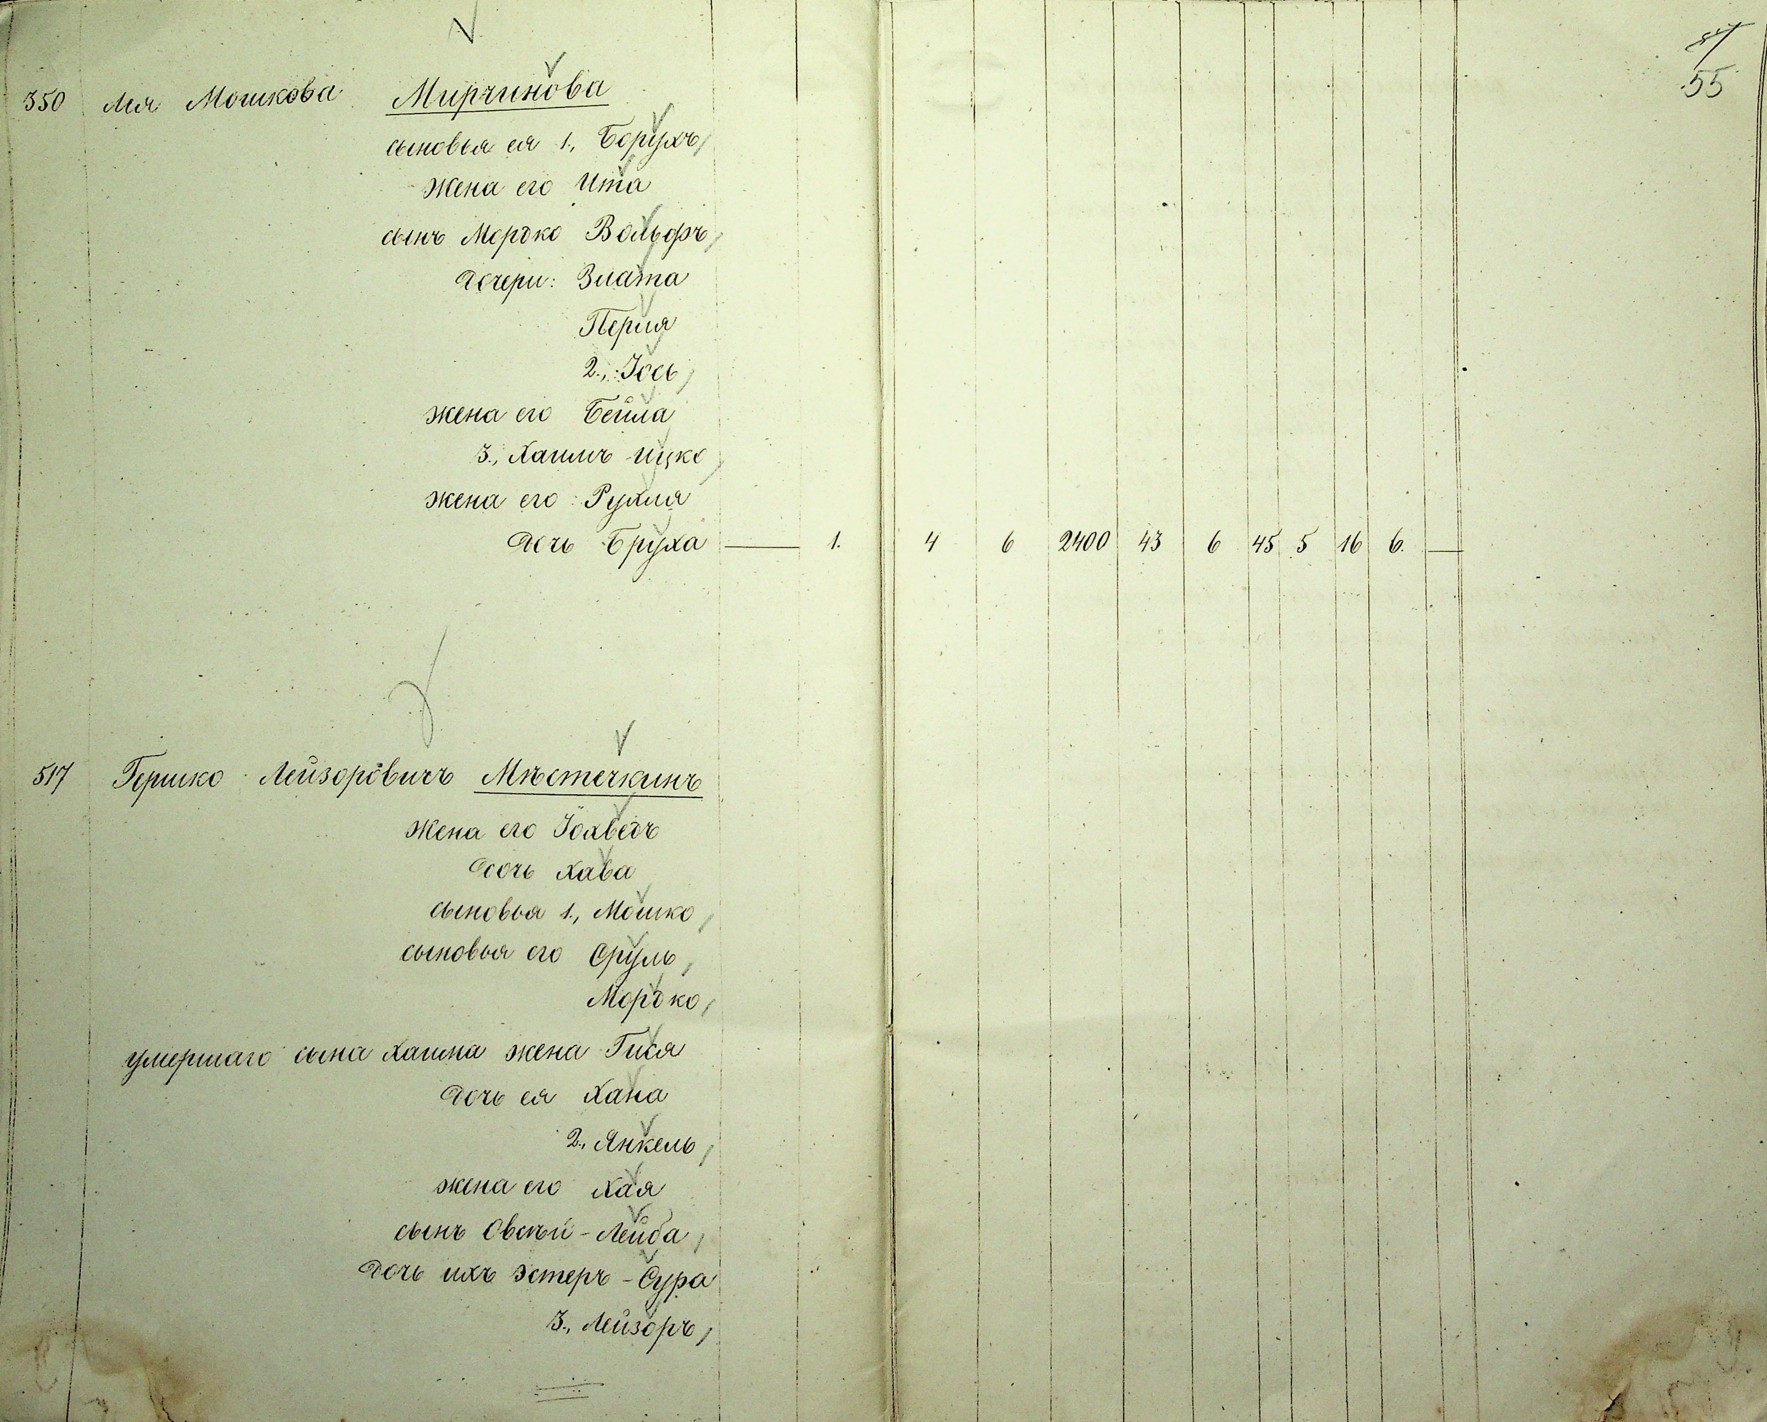 55
350 Лея Мошкова Мирчинова
сыновья ея 1., Борухъ,
жена его Ита
сынъ Мордко Вольфъ,
дочери: Злата
Перля
2., Іось,
жена его Бейла
3., Хаимъ Ицко,
жена его Рухля
дочь Бруха — 1. 4 6 2400 43 6 45 5 16 6. —
517 Гершко Лейзоровичъ Мѣстечкинъ
жена его Іохведъ
дочь Хава
сыновья 1., Мошко,
сыновья его Сруль,
Мордко,
умершаго сына Хаима жена Гися
дочь ея Хана
2., Янкель,
жена его Хая
сынъ Овсѣй-Лейба,
дочь ихъ Эстеръ-Сура
3., Лейзоръ,